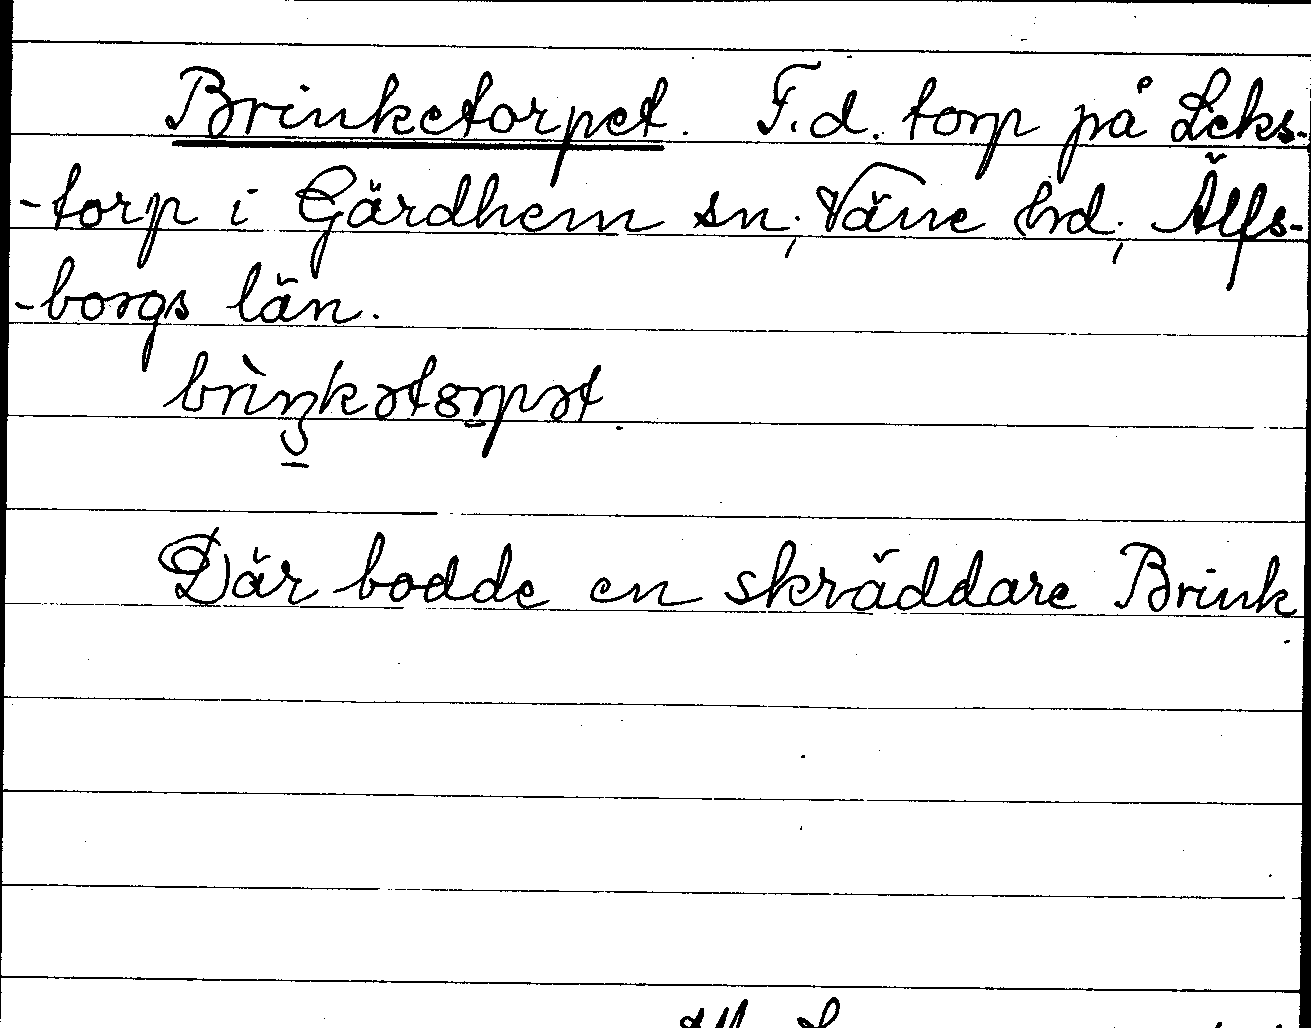 Brinketorpet. F.d. torp på Leks-
-torp i Gärdhem sn; Väne hd; Älfs-
-borgs län.
brìŋkətɷrpət
Där bodde en skräddare Brink